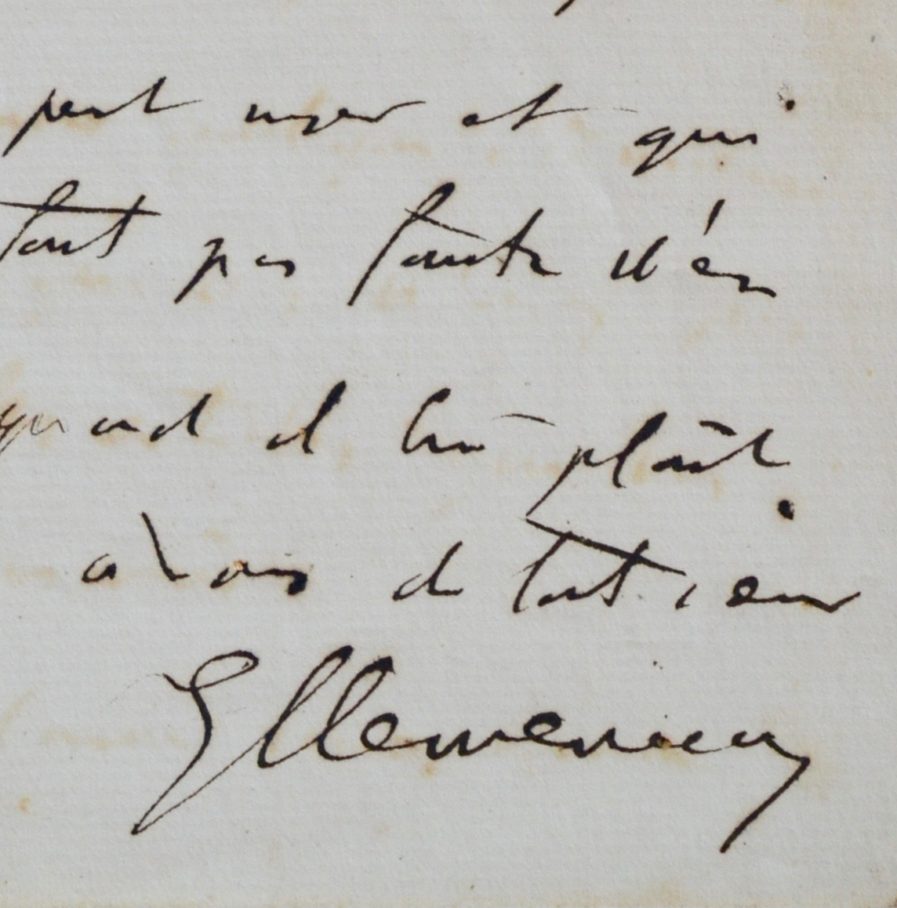 peut user et qui
font pas faute d'en
quand il lui plaît.
à vous de tout cœur
GClemenceau